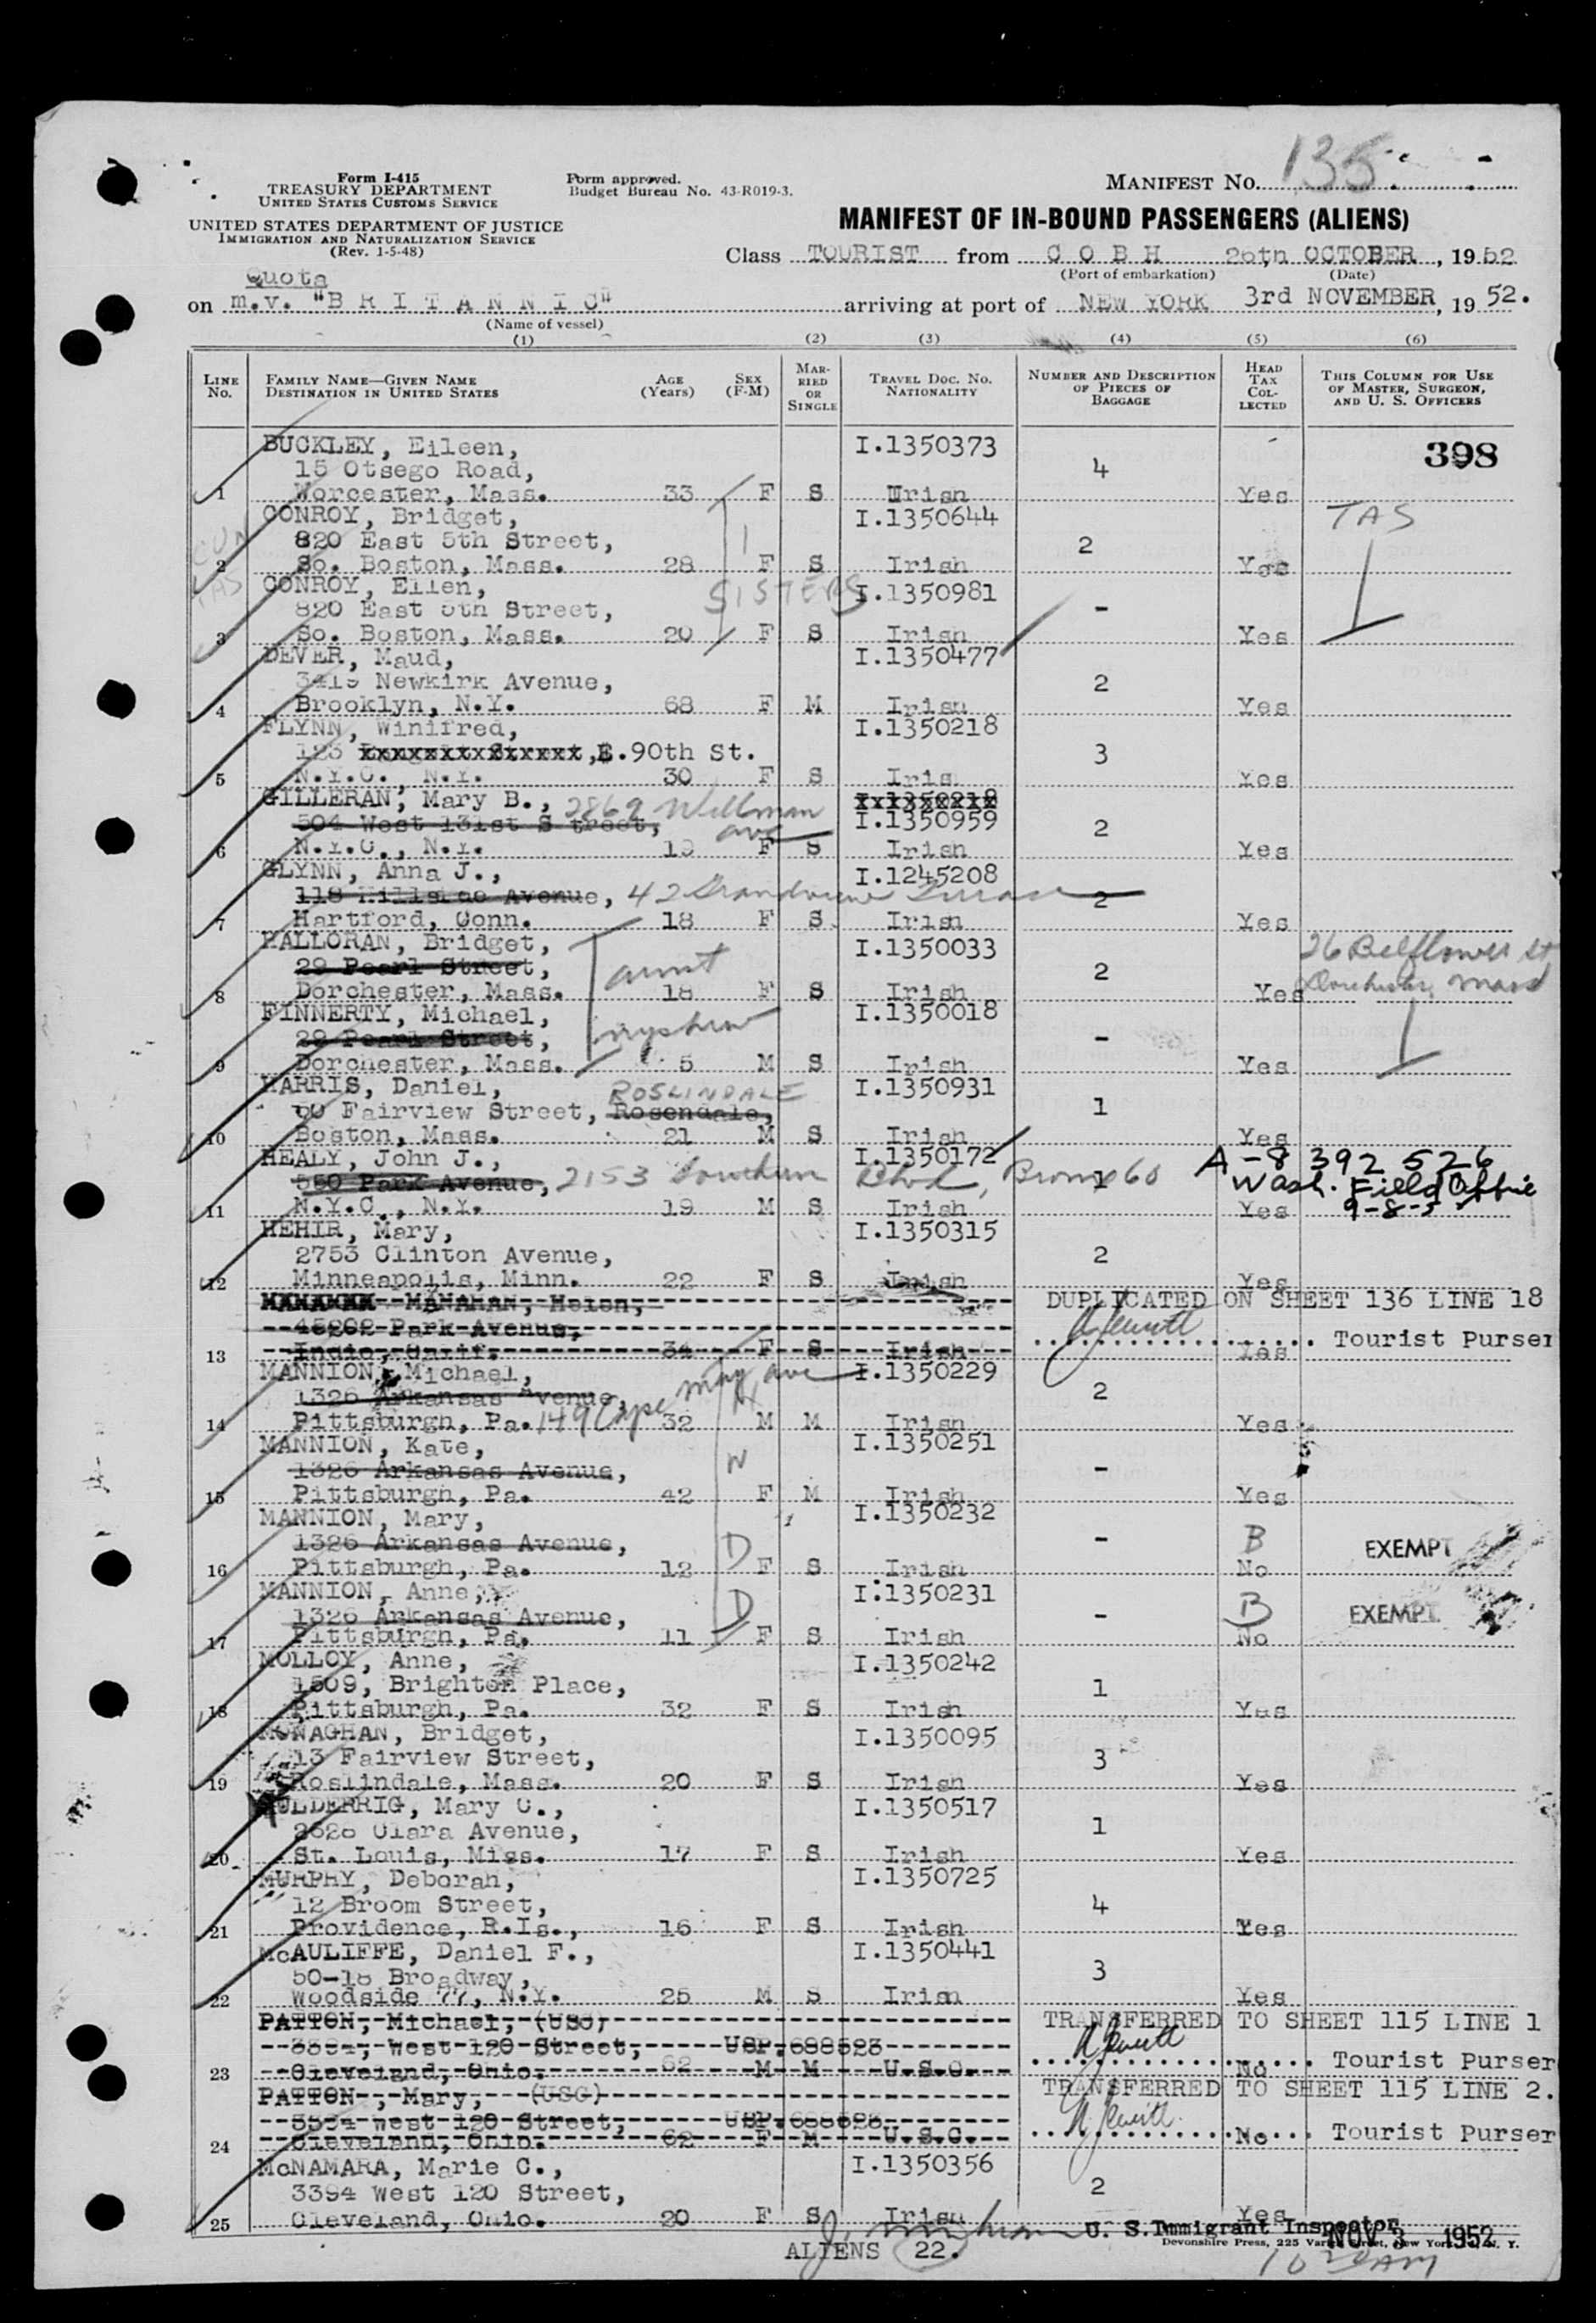 Form I-415
TREASURY DEPARTMENT
UNITED STATES CUSTOMS SERVICE
Form approved.
Budget Bureau No. 43-R019-3.
MANIFEST NO. 135
UNITED STATES DEPARTMENT OF JUSTICE
IMMIGRATION AND NATURALIZATION SERVICE
(Rev. 1-5-48)
MANIFEST OF IN-BOUND PASSENGERS (ALIENS)
Class TOURIST from C O B H 26th OCTOBER, 1952
(Port of embarkation) (Date)
Quota
on m.v. "B R I T A N N I C" arriving at port of NEW YORK 3rd NOVEMBER, 19 52.
(Name of vessel)
(1) (2) (3) (4) (5) (6)
LINE No. FAMILY NAME—GIVEN NAME DESTINATION IN UNITED STATES AGE (Years) SEX (F-M) MARRIED OR SINGLE TRAVEL DOC. NO. NATIONALITY NUMBER AND DESCRIPTION OF PIECES OF BAGGAGE HEAD TAX COLLECTED THIS COLUMN FOR USE OF MASTER, SURGEON, AND U. S. OFFICERS
BUCKLEY, Eileen, I.1350373 398
15 Otsego Road, 4
1 Worcester, Mass. 33 F S Irish Yes
CONROY, Bridget, I.1350644 TAS
820 East 5th Street, 2
2 So. Boston, Mass. 28 F S Irish Yes
CONROY, Ellen, SISTERS I.1350981
820 East 5th Street, -
3 So. Boston, Mass. 20 F S Irish Yes
DEVER, Maud, I.1350477
3415 Newkirk Avenue, 2
4 Brooklyn, N.Y. 68 F M Irish Yes
FLYNN, Winifred, I.1350218
123 E.90th St. 3
5 N.Y.C. N.Y. 30 F S Iris Yes
GILLERAN, Mary B., 2869 Wellman ave I.1350218
504 West 131st S treet, I.1350959 2
6 N.Y.C., N.Y. 19 F S Irish Yes
GLYNN, Anna J., I.1245208
118 Avenue, 42 Grandview Terrace 2
7 Hartford, Conn. 18 F S Irish Yes
HALLORAN, Bridget, aunt I.1350033 26 Belflower St
29 Pearl Street, 2 Dorchester, Mass
8 Dorchester, Mass. 18 F S Irish Yes
FINNERTY, Michael, nephew I.1350018
29 Pearl Street, -
9 Dorchester, Mass. 5 M S Irish Yes
HARRIS, Daniel, ROSLINDALE I.1350931
60 Fairview Street, Rosendale, 1
10 Boston, Mass. 21 M S Irish Yes
HEALY, John J., I.1350172 A-8 392 526
550 Park Avenue, 2153 Southern Blvd, Bronx 60 1 Wash. Field Office
11 N.Y.C., N.Y. 19 M S Irish Yes 9-8-5
HEHIR, Mary, I.1350315
2753 Clinton Avenue, 2
12 Minneapolis, Minn. 22 F S Irish Yes
MANAHAN, Helen, DUPLICATED ON SHEET 136 LINE 18
45202 Park Avenue, Tourist Purser
13 Indio, Calif. 34 F S Irish Yes
MANNION, Michael, I.1350229
1326 Arkansas Avenue, 149 Cape May ave 2
14 Pittsburgh, Pa. 32 M M Irish Yes
MANNION, Kate, W I.1350251
1326 Arkansas Avenue, -
15 Pittsburgh, Pa. 42 F M Irish Yes
MANNION, Mary, I.1350232
1326 Arkansas Avenue, D - B EXEMPT
16 Pittsburgh, Pa. 12 F S Irish No
MANNION, Anne, I.1350231
1326 Arkansas Avenue, D - B EXEMPT
17 Pittsburgh, Pa. 11 F S Irish No
MOLLOY, Anne, I.1350242
1509, Brighton Place, 1
18 Pittsburgh, Pa. 32 F S Irish Yes
MONAGHAN, Bridget, I.1350095
13 Fairview Street, 3
19 Roslindale, Mass. 20 F S Irish Yes
MULDERRIG, Mary C., I.1350517
2628 Clara Avenue, 1
20 St. Louis, Miss. 17 F S Irish Yes
MURPHY, Deborah, I.1350725
12 Broom Street, 4
21 Providence, R.Is., 16 F S Irish Yes
McAULIFFE, Daniel F., I.1350441
50-18 Broadway, 3
22 Woodside 77, N.Y. 25 M S Irish Yes
PATTON, Michael, (USC) TRANSFERRED TO SHEET 115 LINE 1
3394, West 120 Street, USP.688523 Tourist Purser
23 Cleveland, Ohio. 62 M M U.S.C. No
PATTON, Mary, (USC) TRANSFERRED TO SHEET 115 LINE 2.
3394 West 120 Street, USP.688523 Tourist Purser
24 Cleveland, Ohio. 62 F M U.S.C. No
McNAMARA, Marie C., I.1350356
3394 West 120 Street, 2
25 Cleveland, Ohio. 20 F S Irish Yes
U. S. Immigrant Inspector
ALIENS 22. NOV 3 1952
Devonshire Press, 225 Varick Street, New York, N. Y.
AM